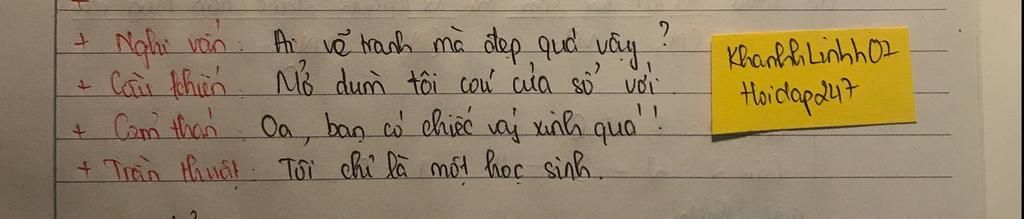 + Nghi vấn: Ai vẽ tranh mà đẹp quá vậy?
+ Cầu khiến: Mở dùm tôi cái cửa sổ với.
+ Cảm thán: Oa, bạn có chiếc váy xinh quá!!
+ Trần thuật: Tôi chỉ là một học sinh.
KhanhhLinhh02
Hoidap247